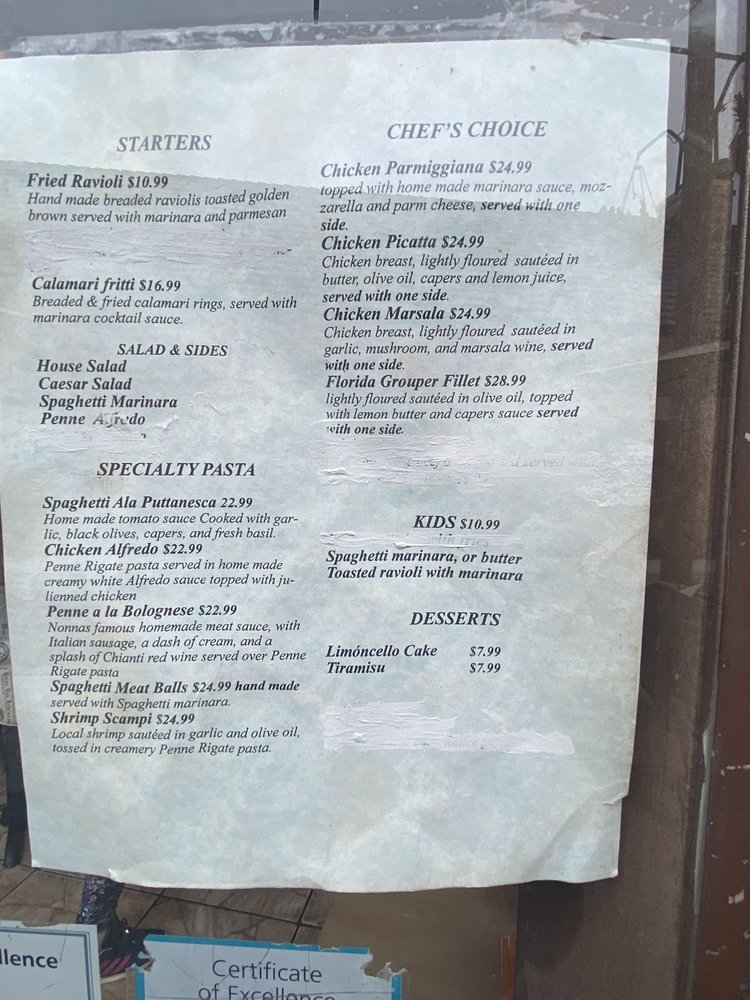 STARTERS
Fried Ravioli $10.99
Hand made breaded raviolis toasted golden
brown served with marinara and parmesan
Calamari fritti $16.99
Breaded & fried calamari rings, served with
marinara cocktail sauce.
SALAD & SIDES
House Salad
Caesar Salad
Spaghetti Marinara
Penne Alfredo
SPECIALTY PASTA
Spaghetti Ala Puttanesca 22.99
Home made tomato sauce Cooked with gar-
lic, black olives, capers, and fresh basil.
Chicken Alfredo $22.99
Penne Rigate pasta served in home made
creamy white Alfredo sauce topped with ju-
lienned chicken
Penne a la Bolognese $22.99
Nonnas famous homemade meat sauce, with
Italian sausage, a dash of cream, and a
splash of Chianti red wine served over Penne
Rigate pasta
Spaghetti Meat Balls $24.99 hand made
served with Spaghetti marinara.
Shrimp Scampi $24.99
Local shrimp sautéed in garlic and olive oil,
tossed in creamery Penne Rigate pasta.
CHEF'S CHOICE
Chicken Parmiggiana $24.99
topped with home made marinara sauce, moz-
zarella and parm cheese, served with one
side.
Chicken Picatta $24.99
Chicken breast, lightly floured sautéed in
butter, olive oil, capers and lemon juice,
served with one side.
Chicken Marsala $24.99
Chicken breast, lightly floured sautéed in
garlic, mushroom, and marsala wine, served
with one side.
Florida Grouper Fillet $28.99
lightly floured sautéed in olive oil, topped
with lemon butter and capers sauce served
with one side.
served with
KIDS $10.99
with fries
Spaghetti marinara, or butter
Toasted ravioli with marinara
DESSERTS
Limóncello Cake $7.99
Tiramisu $7.99
llence
Certificate
of Excellence